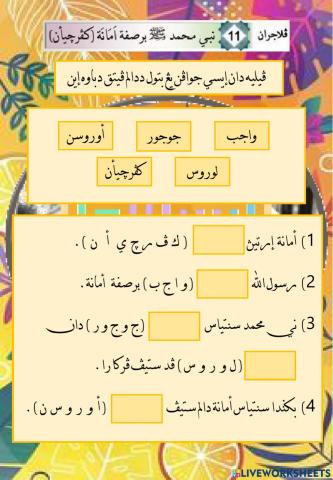 ڤلاجرن 11 نبي محمد ﷺ برصفة أمانة (كڤرچيأن)
ڤيليه دان ايسي جواڤن يڠ بتول ددالم ڤيتق دباوه اين
واجب جوجور أوروسن
لوروس كڤرچيأن
1) أمانة إرتيڽ (ك ڤ ر چ ي أ ن).
2) رسول الله (و ا ج ب) برصفة أمانة.
3) نبي محمد سنتياس (ج و ج و ر) دان
(ل و ر و س) ڤد ستيڤ ڤركارا.
4) بݢيندا سنتياس أمانة دالم ستيڤ (أ و ر و س ن).
LIVEWORKSHEETS